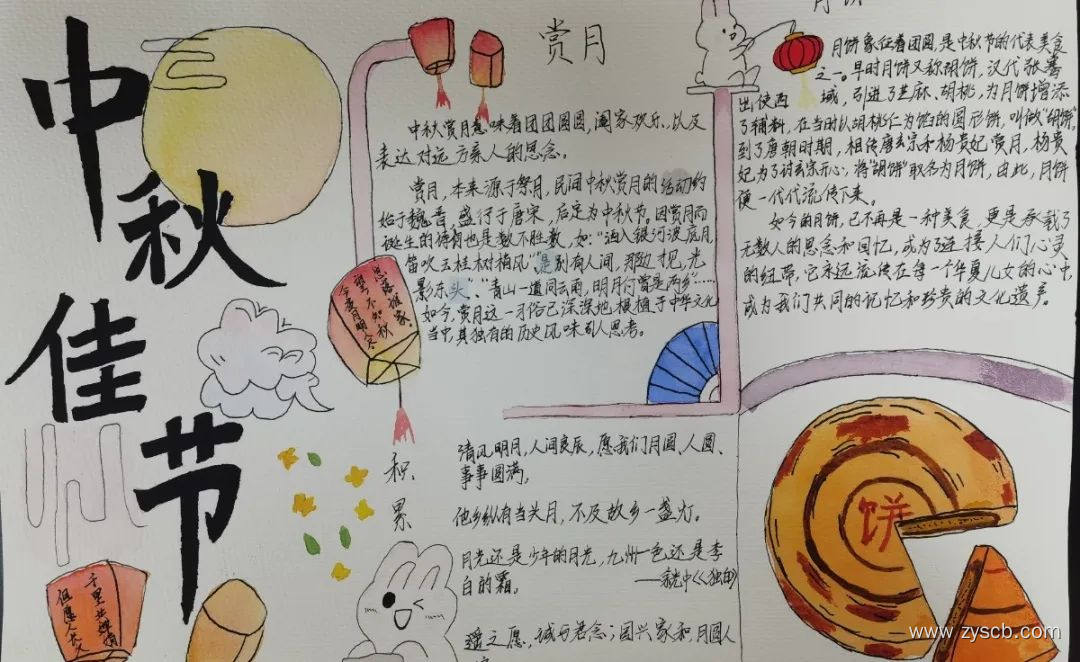 中秋佳节
赏月
中秋赏月意味着团团圆圆,阖家欢乐,以及
表达对远方亲人的思念。
赏月,本来源于祭月,民间中秋赏月的活动约
始于魏晋,盛行于唐宋,后定为中秋节。因赏月而
诞生的诗词也是数不胜数,如:“酒入银河波底月,
笛吹玉桂树梢风”“是别有人间,那边才见,光
影东头”、“青山一道同云雨,明月何曾是两乡”……
如今,赏月这一习俗已深深地根植于中华文化
当中,其独有的历史风味引人思考。
月饼
月饼象征着团圆,是中秋节的代表美食
之一。早时月饼又称胡饼,汉代张骞
出使西域,引进了芝麻、胡桃,为月饼增添
了辅料,在当时以胡桃仁为馅的圆形饼,叫做“胡饼”。
到了唐朝时期,相传唐玄宗和杨贵妃赏月,杨贵
妃为了讨玄宗开心,将“胡饼”取名为月饼,由此,月饼
便一代代流传下来。
如今的月饼,已不再是一种美食,更是承载了
无数人的思念和回忆,成为了连接人们心灵
的纽带,它永远流传在每一个华夏儿女的心中,
成为我们共同的记忆和珍贵的文化遗产。
今夜月明
望不知秋
思落谁家
积累
清风明月,人间良辰,愿我们月圆、人圆、
事事圆满。
他乡纵有当头月,不及故乡一盏灯。
月光还是少年的月光,九州一色还是李
白的霜。
——余光中《独白》
遥之愿,诚与君念;国兴家和,月圆人
但愿人长久
千里共婵娟
饼
www.zyscb.com